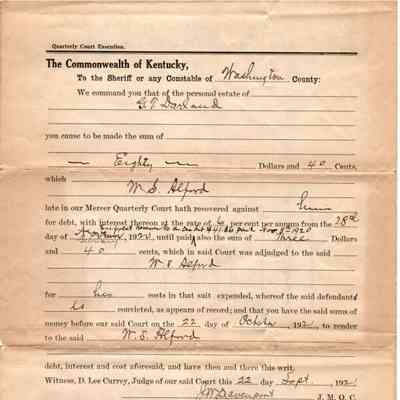 Quarterly Court Execution.
The Commonwealth of Kentucky,
To the Sheriff or any Constable of Washington County:
We command you that of the personal estate of
G T Darland
you cause to be made the sum of
Eighty Dollars and 40 Cents,
which
W. S. Alford
late in our Mercer Quarterly Court hath recovered against him
for debt, with interest thereon at the rate of 6 per cent per annum from the 28th
day of 1920 until paid; also the sum of Three Dollars
and 40 cents, which in said Court was adjudged to the said
W. S. Alford
for his costs in that suit expended, whereof the said defendant
is convicted, as appears of record; and that you have the said sums of
money before our said Court on the 22 day of October, 192 , to render
to the said W. S. Alford
debt, interest and cost aforesaid, and have then and there this writ.
Witness, D. Lee Currey, Judge of our said Court this 22 day Sept 192
J W Davenport J. M. Q. C.